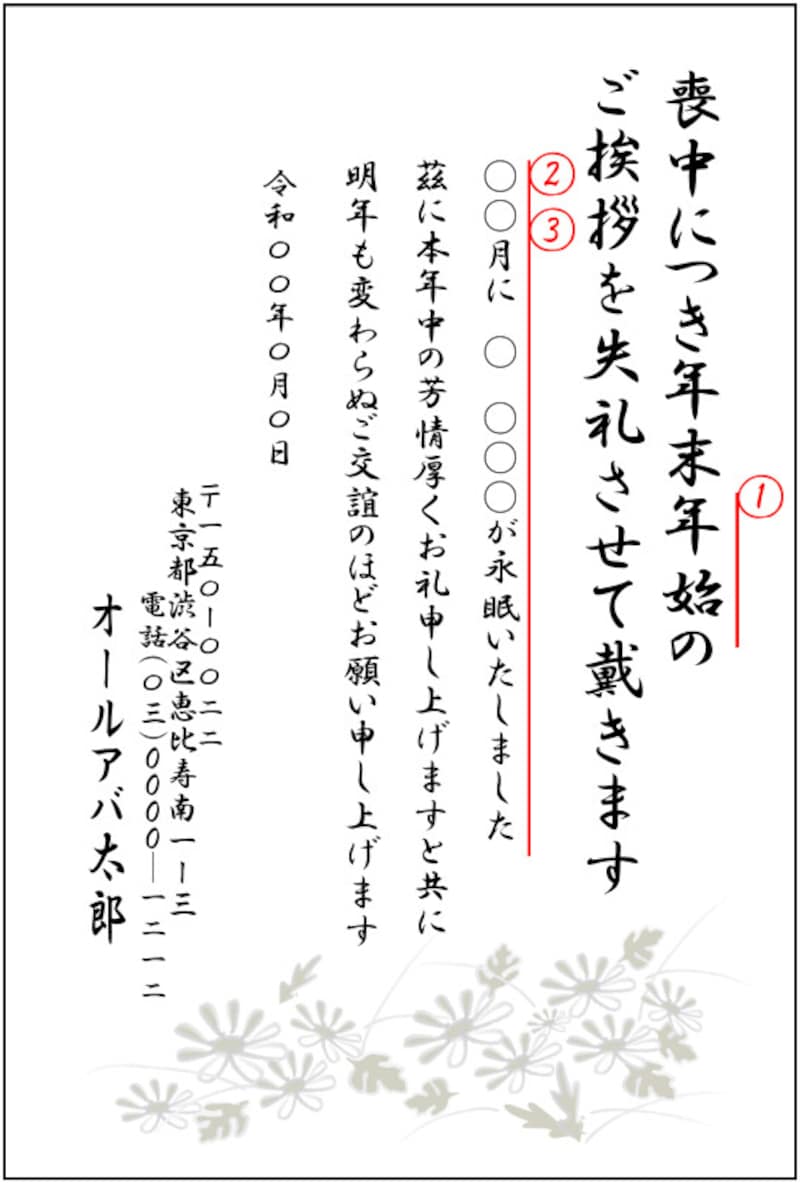 喪中につき年末年始の
ご挨拶を失礼させて戴きます
①
②
③
〇〇月に　〇　〇〇〇が永眠いたしました
茲に本年中の芳情厚くお礼申し上げますと共に
明年も変わらぬご交誼のほどお願い申し上げます
令和〇〇年〇月〇日
〒一五〇ー〇〇二二
東京都渋谷区恵比寿南一ー三
電話(〇三)〇〇〇〇―一二一二
オールアバ太郎